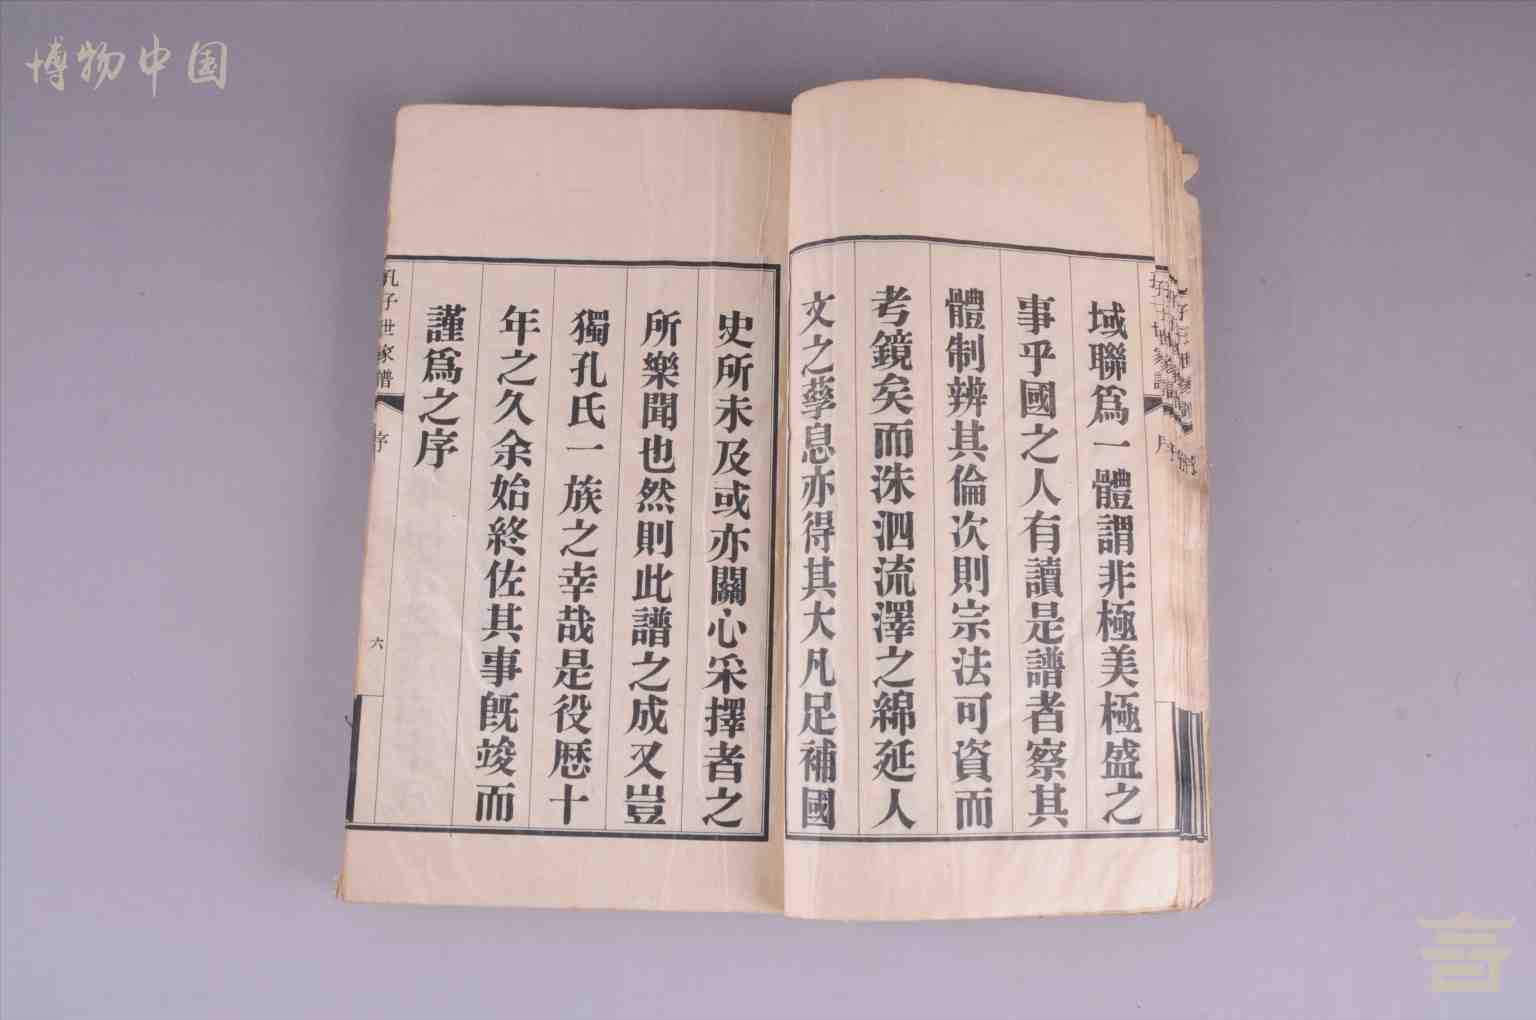 博物中国
域聯爲一體謂非極美極盛之
事乎國之人有讀是譜者察其
體制辨其倫次則宗法可資而
考鏡矣而洙泗流澤之綿延人
文之孳息亦得其大凡足補國
史所未及或亦關心采擇者之
所樂聞也然則此譜之成又豈
獨孔氏一族之幸哉是役歷十
年之久余始終佐其事既竣而
謹爲之序
孔子世家譜
序
六